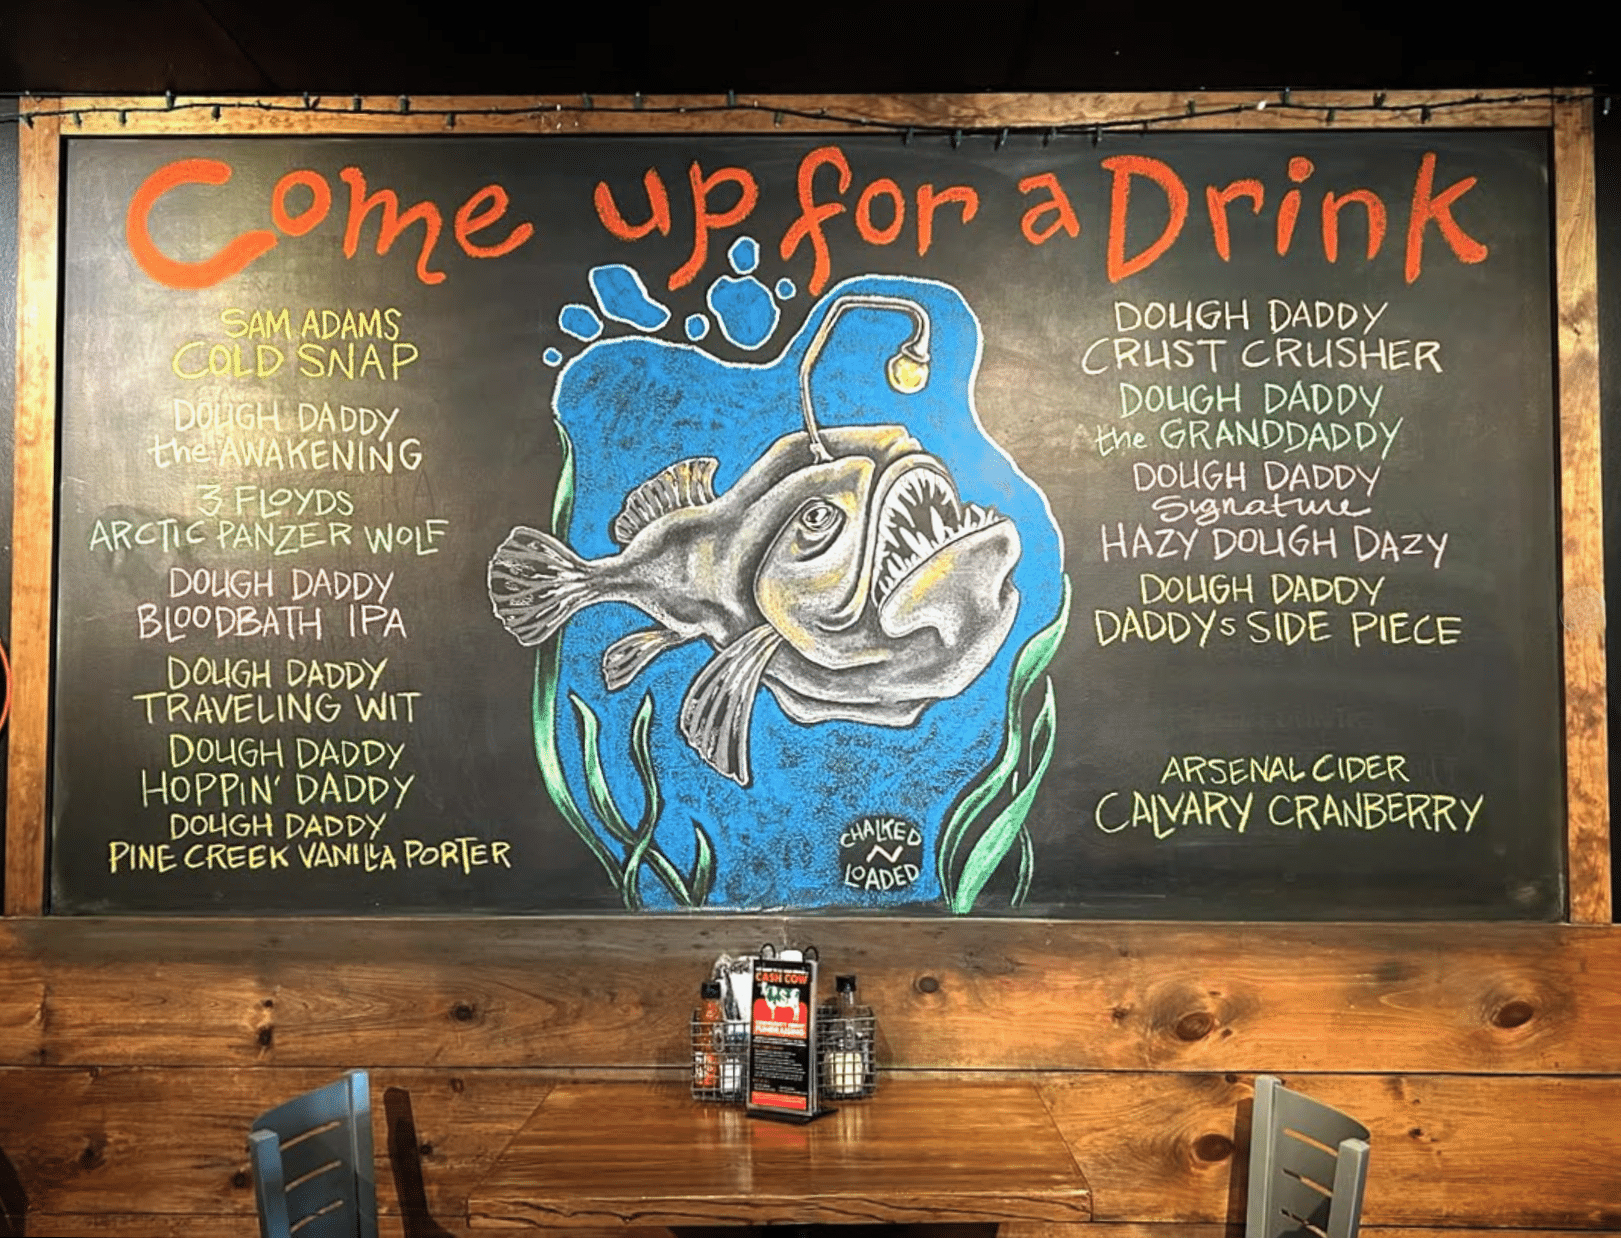 Come up for a Drink
SAM ADAMS
COLD SNAP
DOUGH DADDY
the AWAKENING
3 FLOYDS
ARCTIC PANZER WOLF
DOUGH DADDY
BLOODBATH IPA
DOUGH DADDY
TRAVELING WIT
DOUGH DADDY
HOPPIN' DADDY
DOUGH DADDY
PINE CREEK VANILLA PORTER
DOUGH DADDY
CRUST CRUSHER
DOUGH DADDY
the GRANDDADDY
DOUGH DADDY
Signature
HAZY DOUGH DAZY
DOUGH DADDY
DADDYs SIDE PIECE
ARSENAL CIDER
CALVARY CRANBERRY
CHALKED
N
LOADED
CASH COW
FUNDRAISING